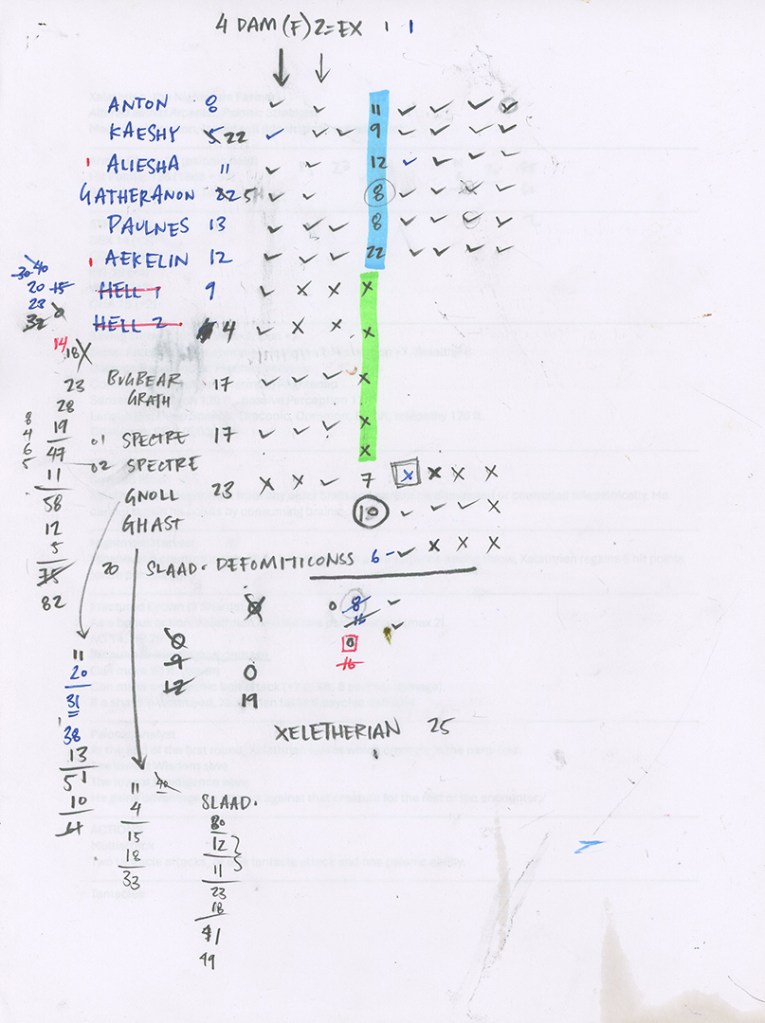 4 DAM (F) 2=EX 1 1
ANTON 8 ✓ ✓ 11 ✓ ✓ ✓ ✓
KAESHY 5 22 ✓ ✓ ✓ 9 ✓ ✓ ✓ ✓
ALIESHA 11 ✓ ✓ 12 ✓ ✓ ✓ ✓
GATHERANON 22 5 ✓ ✓ 8 ✓ ✓ ✓
PAULNES 13 ✓ ✓ ✓ 8 ✓ ✓ ✓ ✓
AEKELIN 12 ✓ ✓ ✓ 22 ✓ ✓ ✓ ✓
HELL 1 9 ✓ X X X
HELL 2 4 ✓ X X X
BUGBEAR 17 ✓ ✓ ✓ X
GRATH
01 SPECTRE 17 ✓ ✓ ✓ X
02 SPECTRE X
GNOLL 23 X X ✓ 7 X X X X
GHAST 10 ✓ ✓ ✓ X
70 SLAAD. DEFOMITICONSS 6 - ✓ X X X
0 8 ✓
16 ✓
0
16
0
9
12
0
19
XELETHERIAN 25
30 40
20 15
23
32
14
18 X
23
28
8 19
4 47
6 11
5 58
12
5
75
82
11
20
31
38
13
51
10
11 40
4
15
18
33
SLAAD.
30
12
11
23
18
41
49